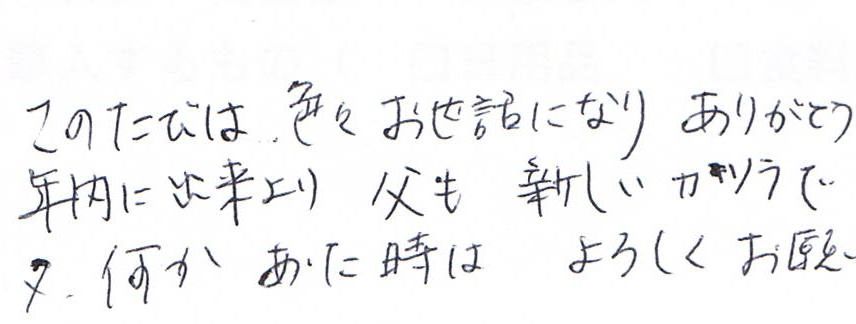 このたびは 色々 お世話になり ありがとう
年内に出来上り 父も 新しい カツラで
又、何か あった時は よろしく お願